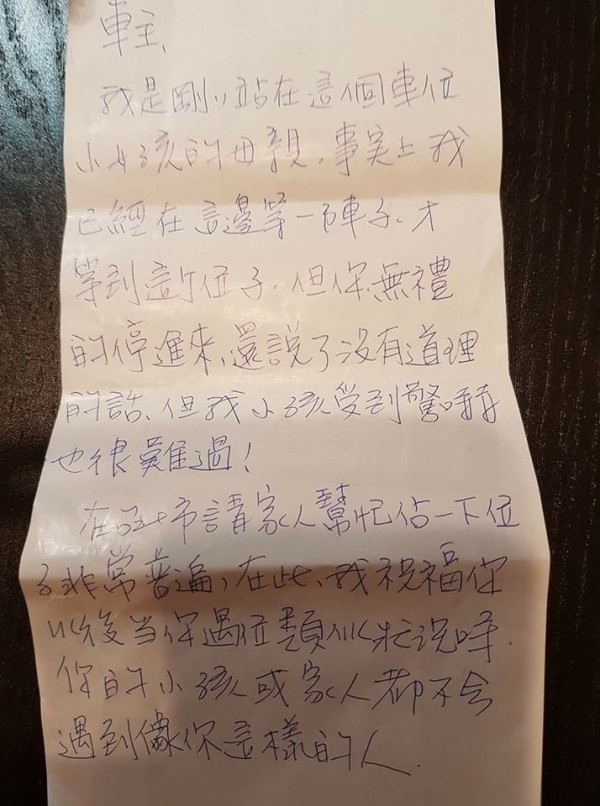 車主、
我是剛剛站在這個車位
小女孩的母親，事實上我
已經在這邊等一陣子、才
等到這个位子，但你無禮
的停進來，還說了沒有道理
的話、但我小孩受到驚嚇
也很難過！
在 市請家人幫忙佔一下位
子非常普遍，在此、我祝福你
以後当你遇 類似狀況時、
你的小孩或家人都不会
遇到像你這樣的人.